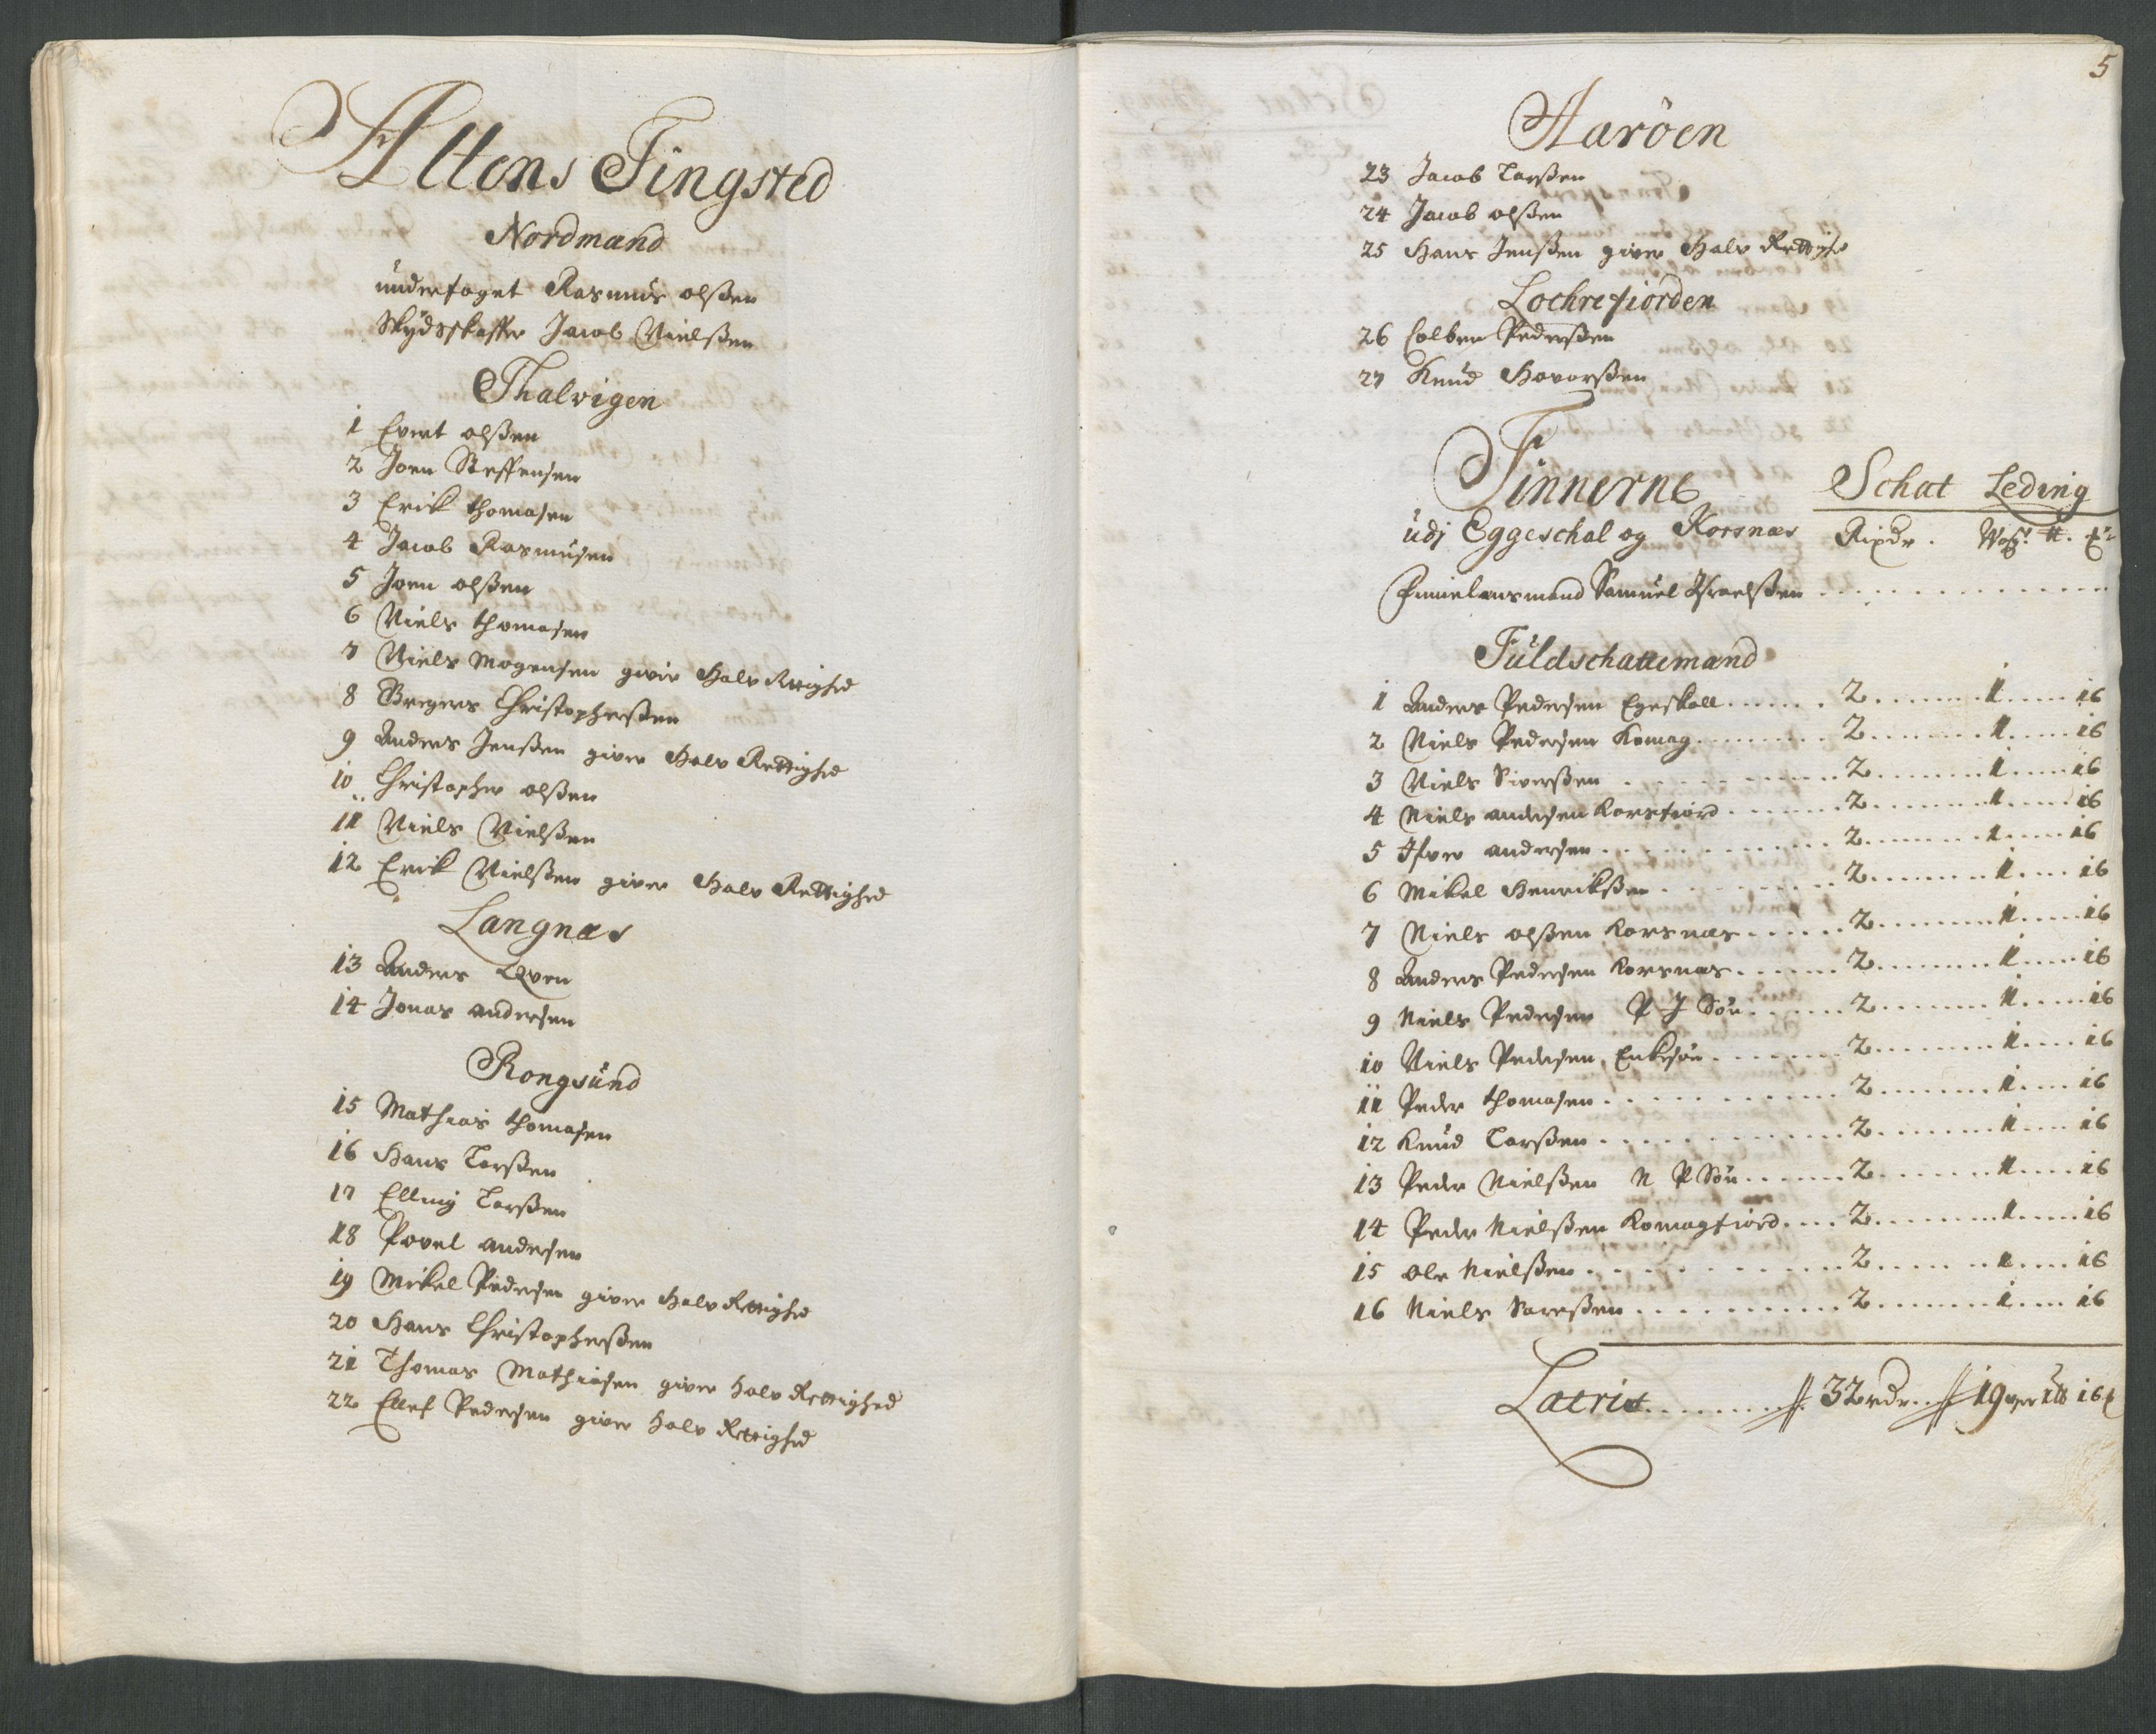 Altens Tingsted
Nordmand
underfoget Rasmus olßen
Skydsskaffer Jacob Nielßen
Thalvigen
1 Evert olßen
2 Joen Steffensen
3 Erik thomasen
4 Jacob Rasmusen
5 Joen olßen
6 Niels thomasen
7 Niels Mogensen giver Halv Rettighed
8 Gregers Christopherßen
9 Anders Jenßen giver Halv Rettighed
10 Christopher olßen
11 Niels Nielßen
12 Erik Nielßen giver Halv Rettighed
Langnæs
13 Anders Qven
14 Jonas andersen
Rongsund
15 Mathias thomasen
16 Hans Larßen
17 Elling Larßen
18 Povel andersen
19 Mikel Pedersen giver Halv Rettighed
20 Hans Christopherßen
21 Thomas Mathiasen giver halv Rettighed
22 Ellef Pedersen giver halv Rettighed
5
Aarøen
23 Jacob Larßen
24 Jacob olßen
25 Hans Jenßen giver Halv Rettighed
Lochrefiorden
26 Colben Pederßen
27 Knud Havorßen
Finnerne Schat Leding
udj Eggeschal og Korsnæs Rixdr. Wog. ℔.
Finnelensmand Samuel Israelßen
Fuldschattemænd
1 Anders Pedersen Egeskall 2 1 16
2 Niels Pedersen Komag 2 1 16
3 Niels Siverßen 2 1 16
4 Niels andersen Korsfiord 2 1 16
5 Ifver andersen 2 1 16
6 Mikel Henrikßen 2 1 16
7 Niels olßen Korsnæs 2 1 16
8 Anders Pedersen Korsnæs 2 1 16
9 Niels Pedersen P J Søn 2 1 16
10 Niels Pedersen, Enkesøn 2 1 16
11 Peder thomasen 2 1 16
12 Knud Larßen 2 1 16
13 Peder Nielßen N P Søn 2 1 16
14 Peder Nielßen Komagfiord 2 1 16
15 Ole Nielßen 2 1 16
16 Niels Sareßen 2 1 16
Lateris 32 rdr. 19